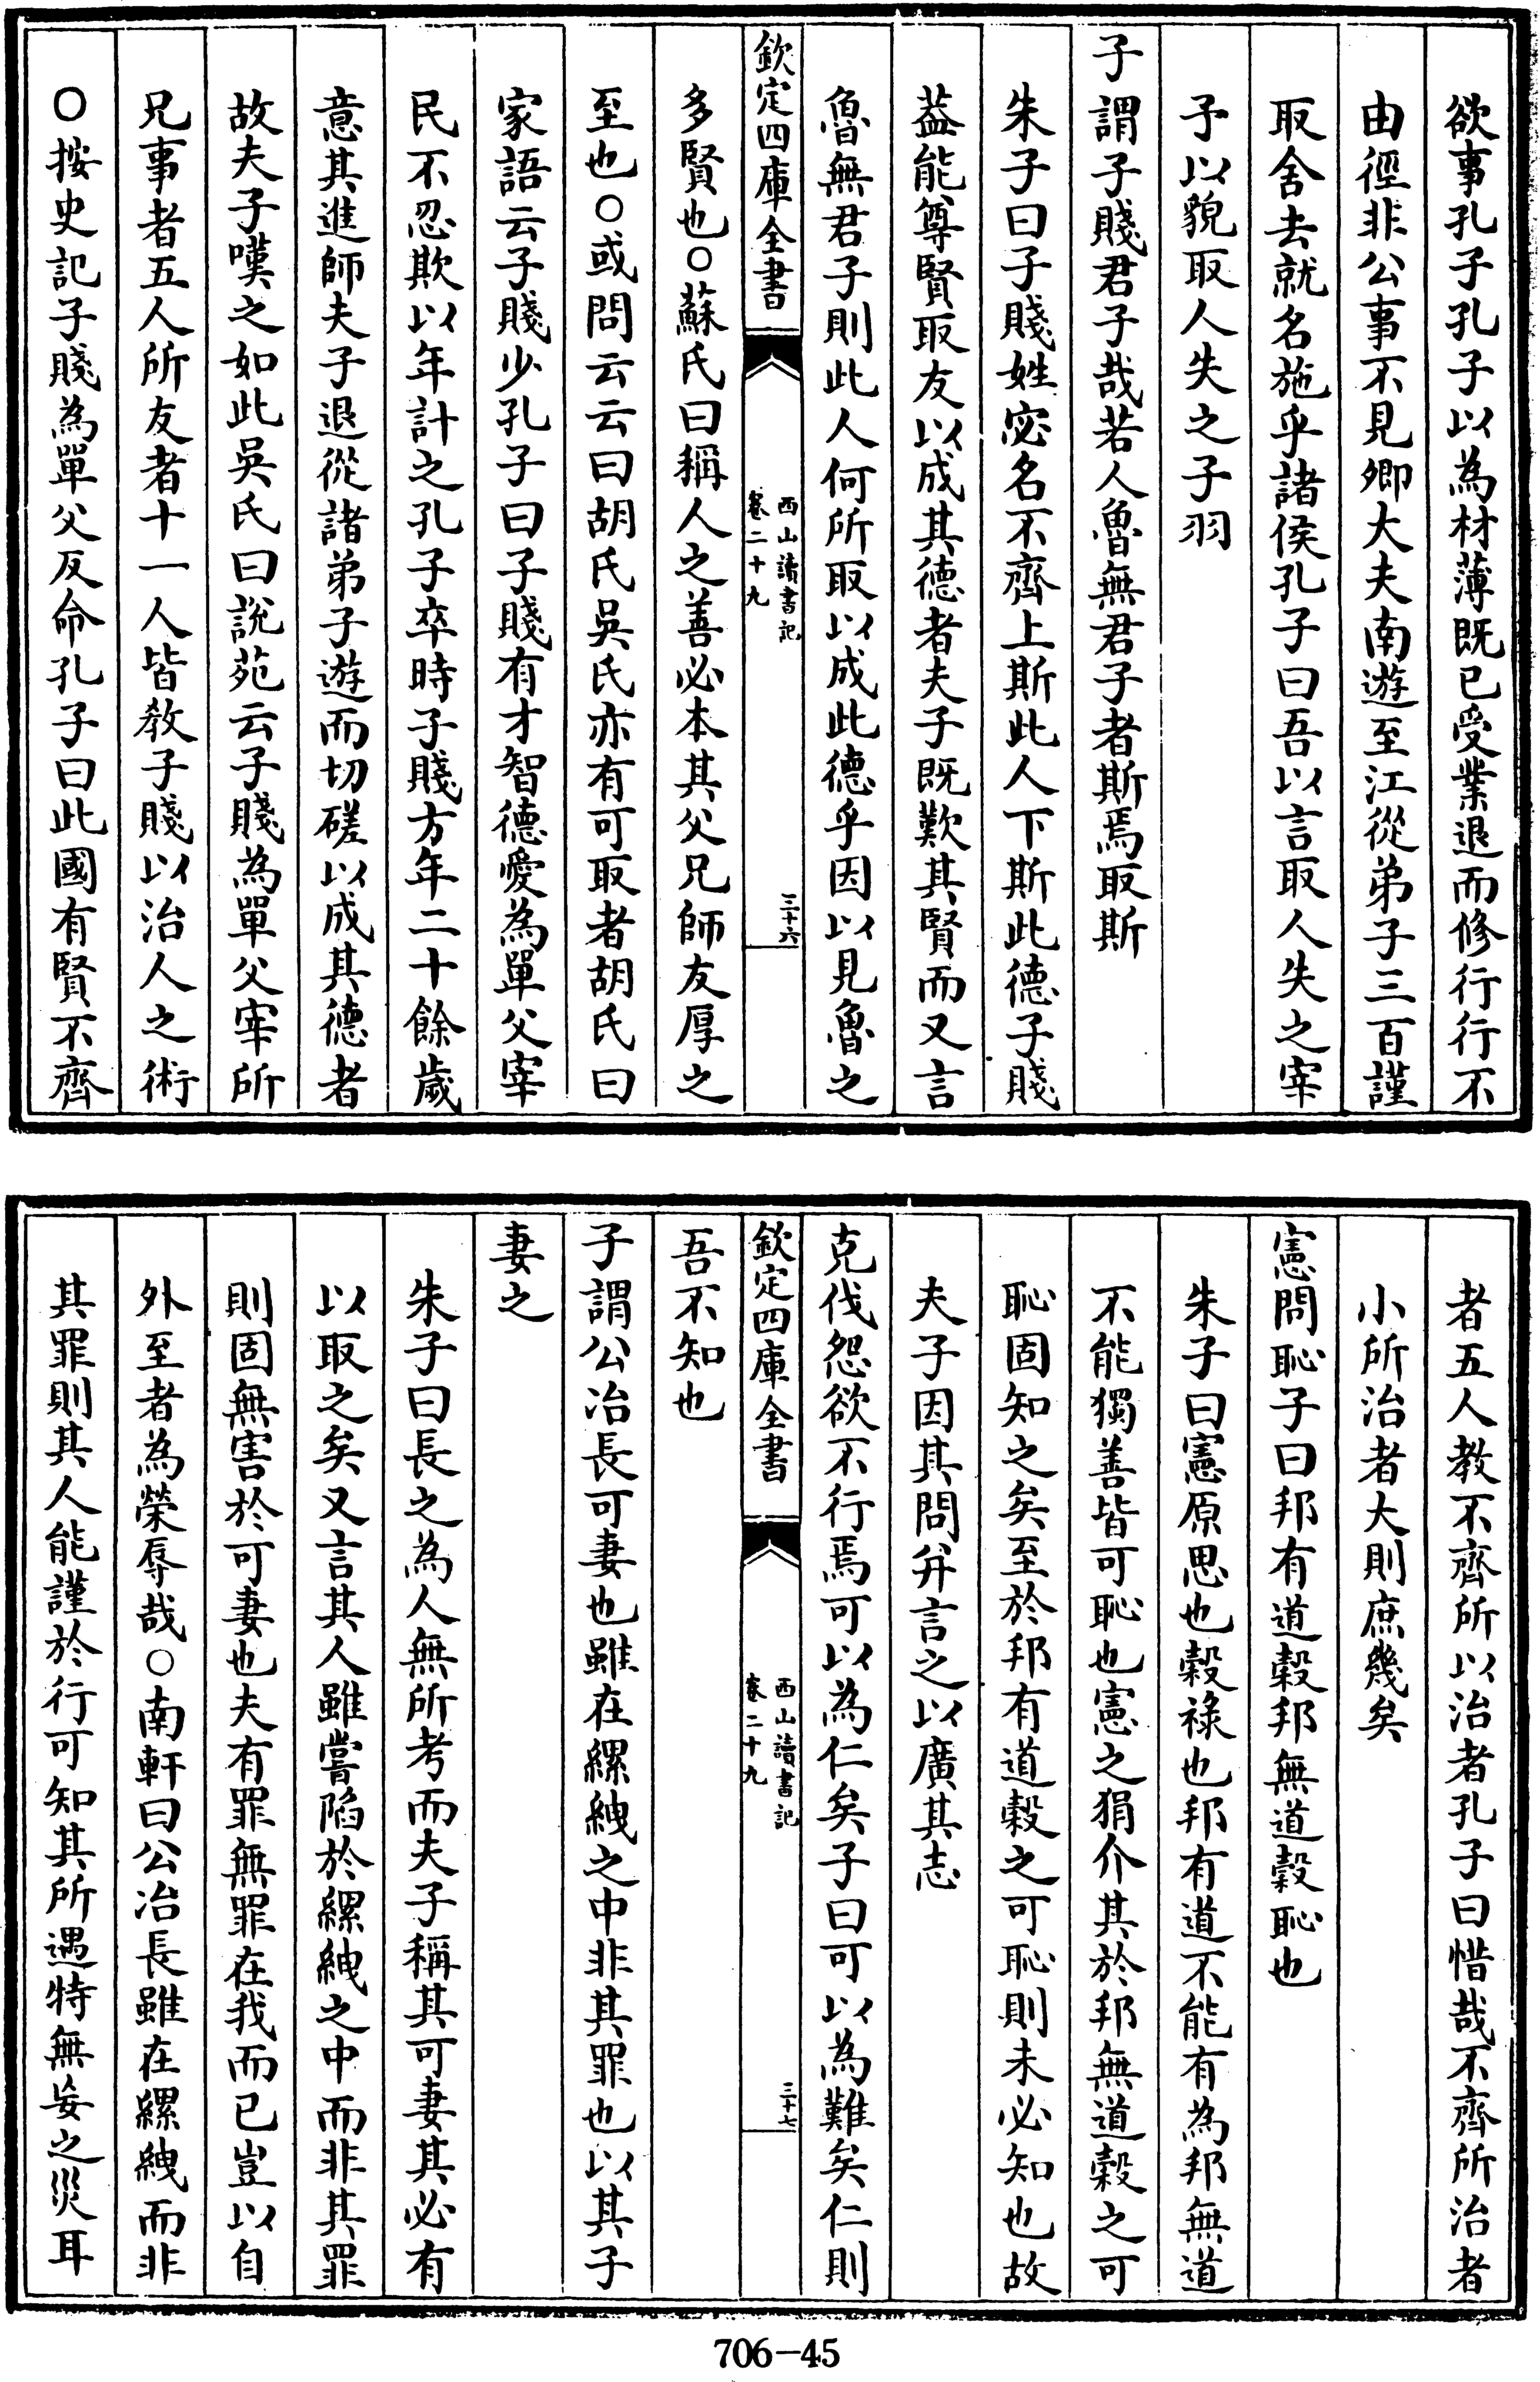 欲事孔子孔子以為材薄既已受業退而修行行不
由徑非公事不見卿大夫南遊至江從弟子三百謹
取舍去就名施乎諸侯孔子曰吾以言取人失之宰
予以貌取人失之子羽
子謂子賤君子哉若人魯無君子者斯焉取斯
朱子曰子賤姓宓名不齊上斯此人下斯此德子賤
葢能尊賢取友以成其德者夫子既歎其賢而又言
魯無君子則此人何所取以成此德乎因以見魯之
欽定四庫全書
西山讀書記
卷二十九
三十六
多賢也○蘇氏曰稱人之善必本其父兄師友厚之
至也○或問云云曰胡氏吳氏亦有可取者胡氏曰
家語云子賤少孔子曰子賤有才智德愛為單父宰
民不忍欺以年計之孔子卒時子賤方年二十餘歲
意其進師夫子退從諸弟子遊而切磋以成其德者
故夫子嘆之如此吳氏曰說苑云子賤為單父宰所
兄事者五人所友者十一人皆教子賤以治人之術
○按史記子賤為單父反命孔子曰此國有賢不齊
者五人教不齊所以治者孔子曰惜哉不齊所治者
小所治者大則庶幾矣
憲問恥子曰邦有道榖邦無道榖恥也
朱子曰憲原思也榖祿也邦有道不能有為邦無道
不能獨善皆可恥也憲之狷介其於邦無道榖之可
恥固知之矣至於邦有道榖之可恥則未必知也故
夫子因其問并言之以廣其志
克伐怨欲不行焉可以為仁矣子曰可以為難矣仁則
欽定四庫全書
西山讀書記
卷二十九
三十七
吾不知也
子謂公冶長可妻也雖在縲絏之中非其罪也以其子
妻之
朱子曰長之為人無所考而夫子稱其可妻其必有
以取之矣又言其人雖嘗陷於縲絏之中而非其罪
則固無害於可妻也夫有罪無罪在我而已豈以自
外至者為榮辱哉○南軒曰公冶長雖在縲絏而非
其罪則其人能謹於行可知其所遇特無妄之災耳
706-45